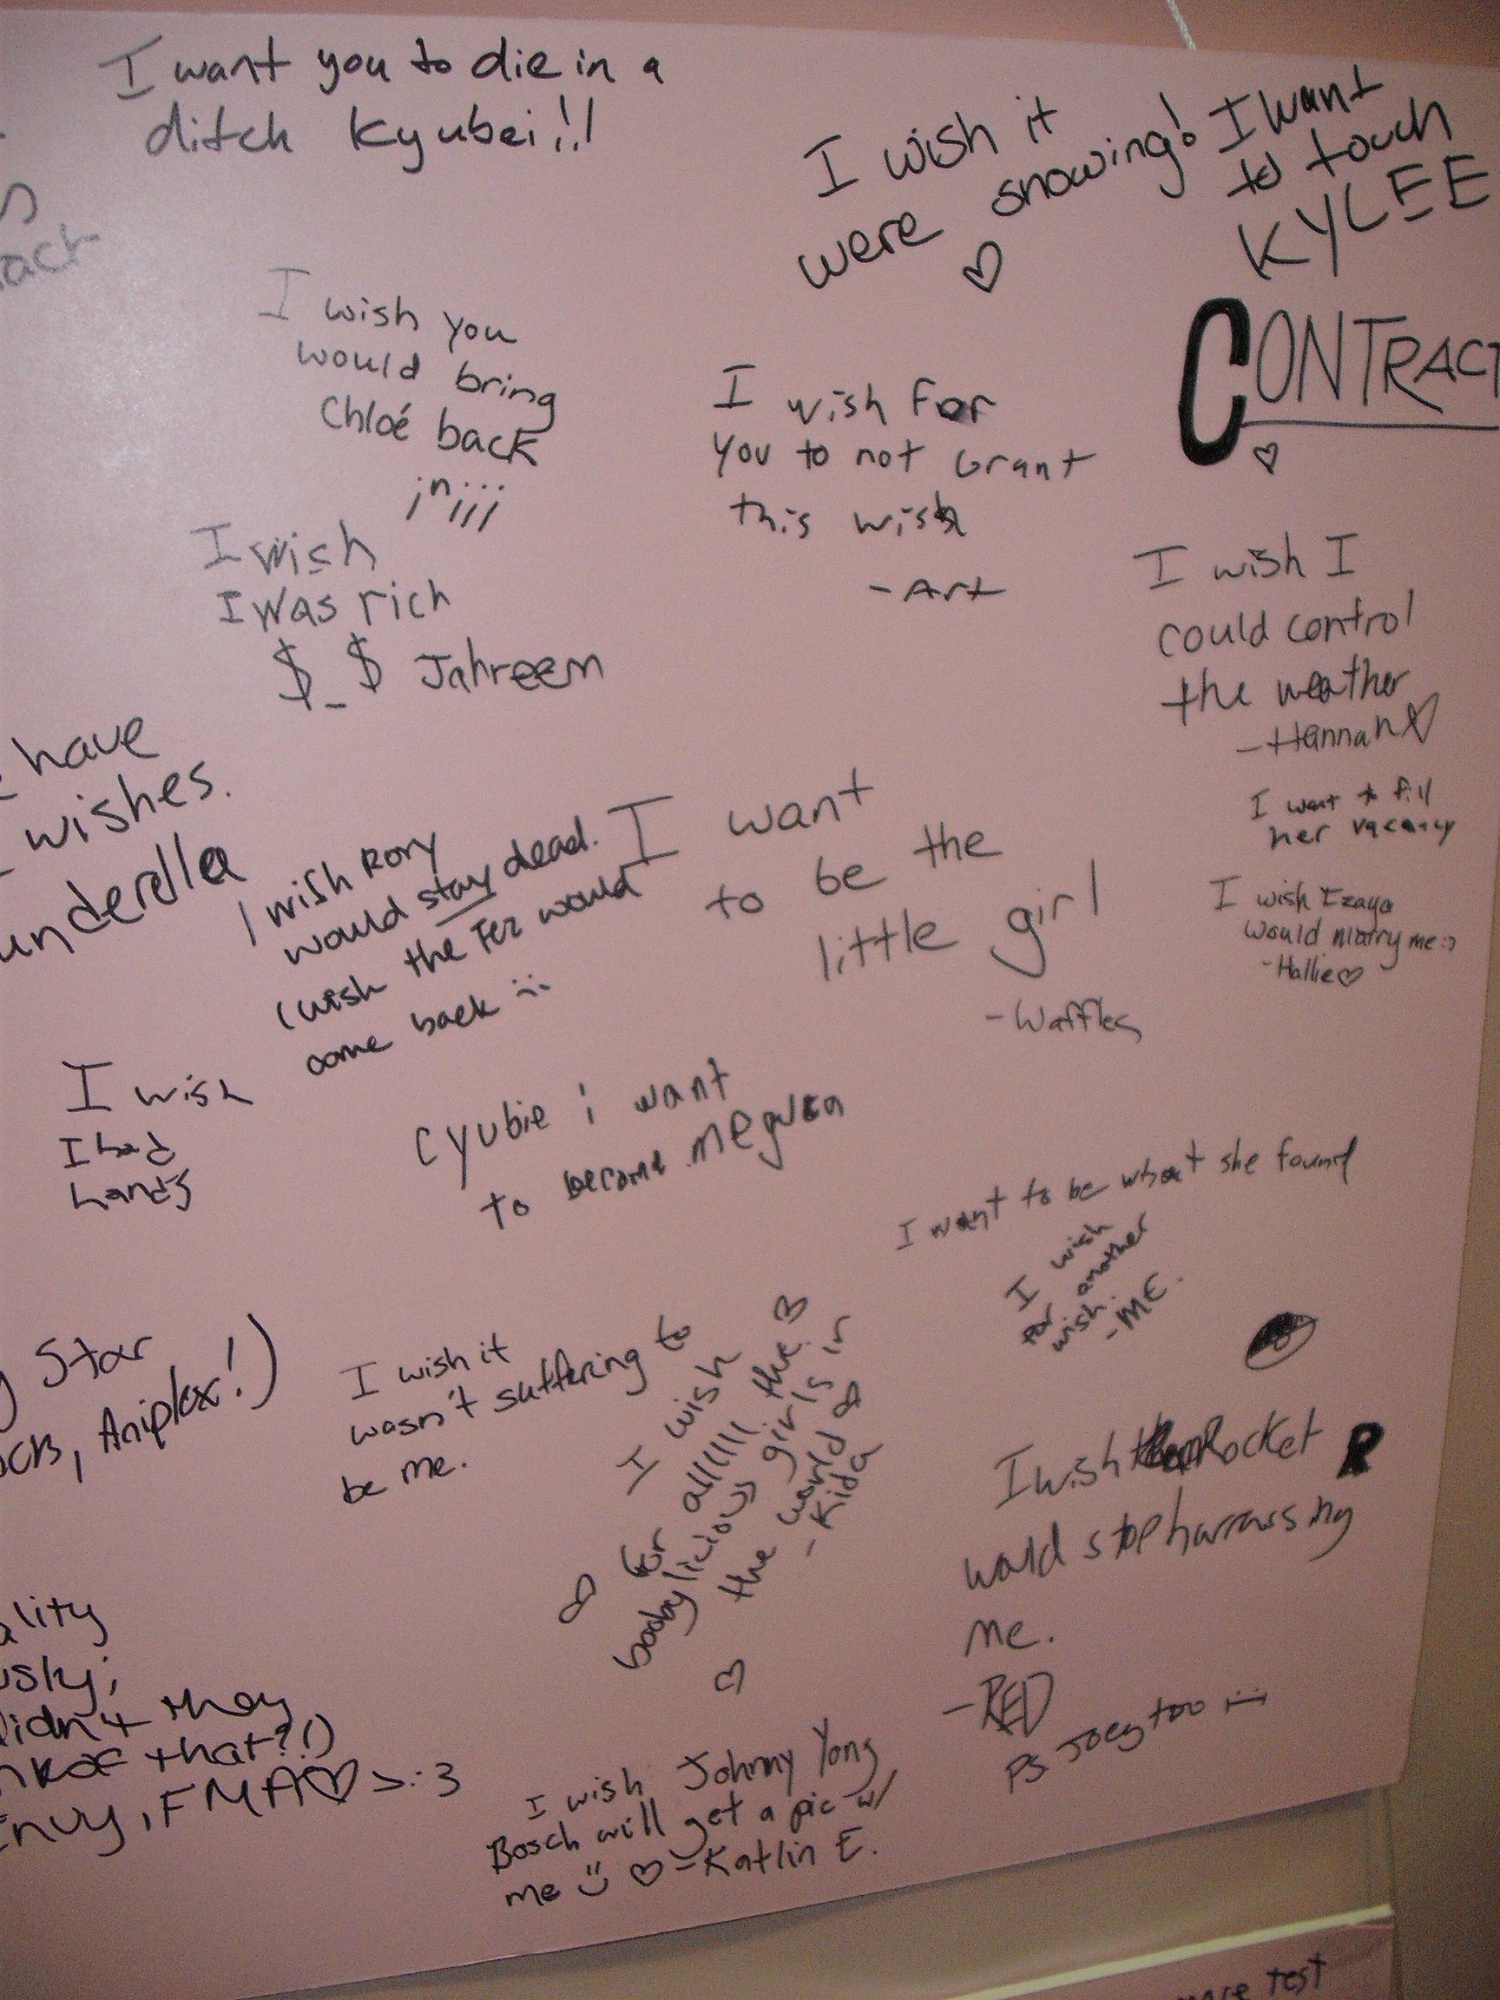 I want you to die in a
ditch Kyubei!!
I wish it
were snowing!
I want
to touch
KYLEE
CONTRACT
I wish you
would bring
Chloé back
I wish for
you to not Grant
this wish
-Art
I wish
I was rich
$_$ Jahreem
I wish I
could control
the weather
-Hannah
I want to fill
her vacancy
I wish Izaya
would marry me :)
-Hallie
have
wishes.
I wish Rory
would stay dead.
I wish the Fez would
come back
I want
to be the
little girl
-Waffles
I wish
I had
hands
Cyubie i want
to become
I want to be what she found
I wish
for another
wish.
-ME.
Star
Aniplex!)
I wish it
wasn't suffering to
be me.
I wish
for allllll the
boobylicious girls in
the world
-Kida
I wish Rocket R
would stop harrassing
me.
-RED
PS Joey too
ality
they
that?!)
Envy, FMA♡ >:3
I wish Johnny Yong
Bosch will get a pic w/
me ♡ -Katlin E.
test